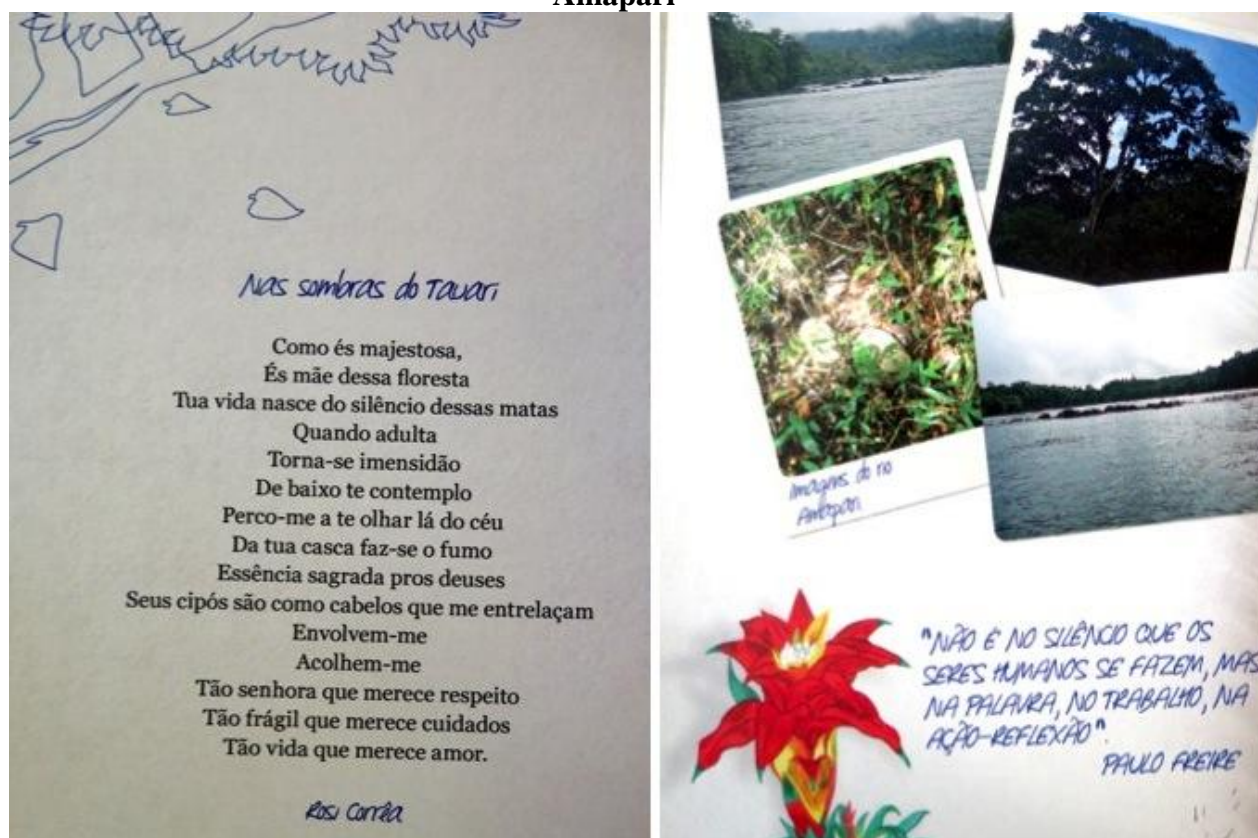 Amapari
Nas sombras do Tauari
Como és majestosa,
És mãe dessa floresta
Tua vida nasce do silêncio dessas matas
Quando adulta
Torna-se imensidão
De baixo te contemplo
Perco-me a te olhar lá do céu
Da tua casca faz-se o fumo
Essência sagrada pros deuses
Seus cipós são como cabelos que me entrelaçam
Envolvem-me
Acolhem-me
Tão senhora que merece respeito
Tão frágil que merece cuidados
Tão vida que merece amor.
Rosi Corrêa
Imagens do rio
Amapari
"NÃO É NO SILÊNCIO QUE OS
SERES HUMANOS SE FAZEM, MAS
NA PALAVRA, NO TRABALHO, NA
AÇÃO-REFLEXÃO".
PAULO FREIRE